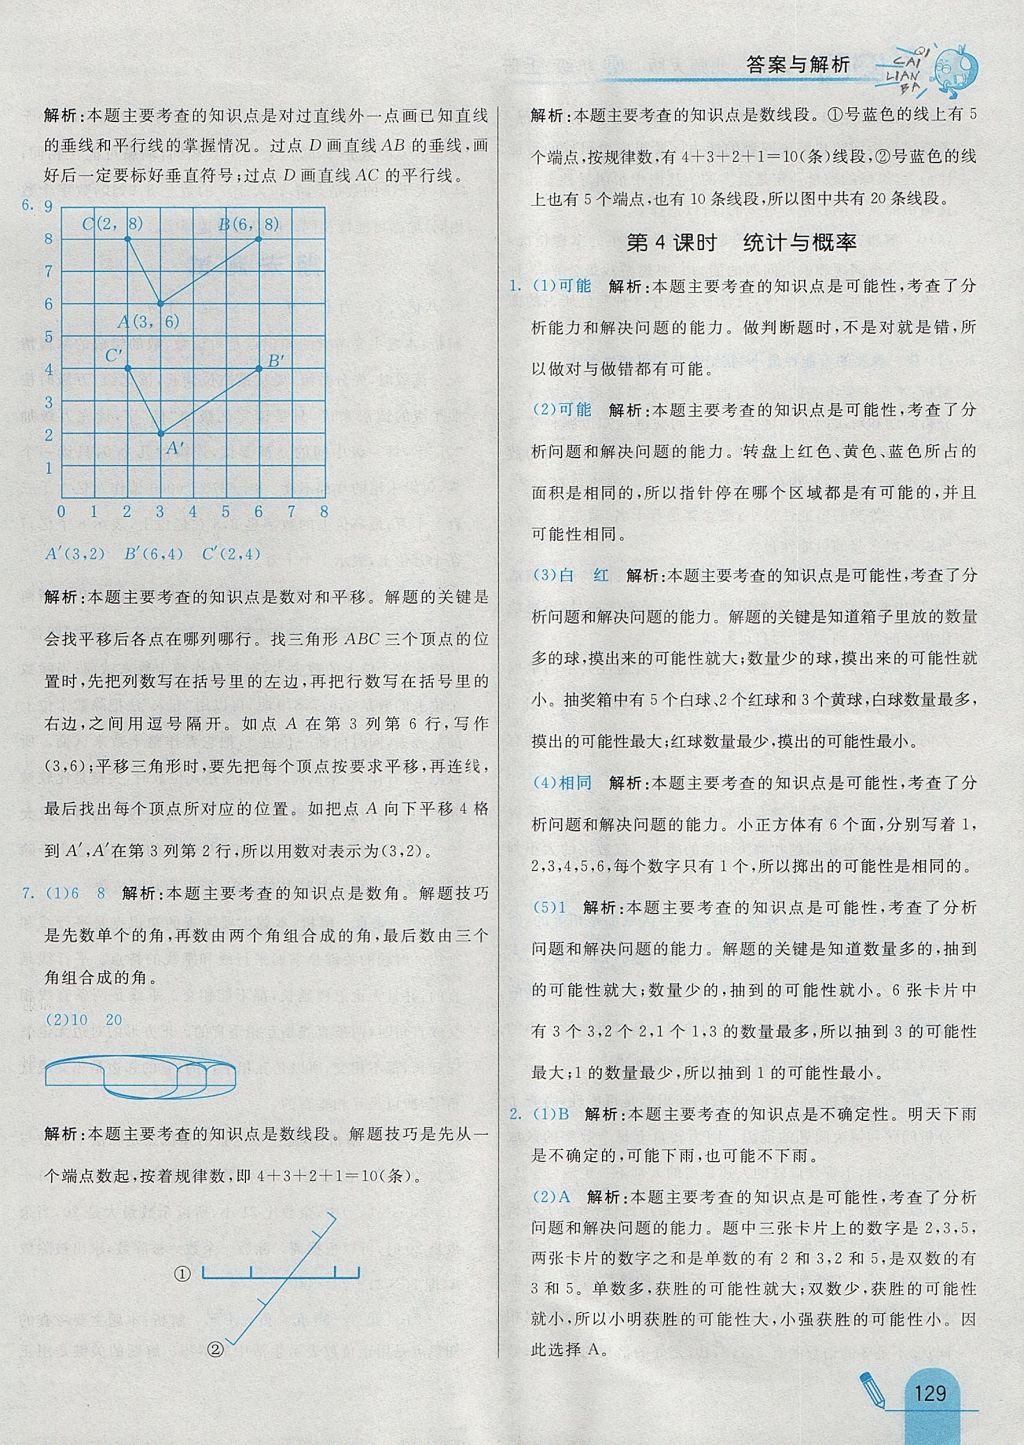 答案与解析
QI
CAI
LIAN
BA
解析:本题主要考查的知识点是对过直线外一点画已知直线
的垂线和平行线的掌握情况。过点 D 画直线 AB 的垂线,画
好后一定要标好垂直符号;过点 D 画直线 AC 的平行线。
6.
9
C(2, 8) B(6, 8)
8
7
6
A(3, 6)
5
C′ B′
4
3
2
A′
1
0 1 2 3 4 5 6 7 8
A′(3,2) B′(6,4) C′(2,4)
解析:本题主要考查的知识点是数对和平移。解题的关键是
会找平移后各点在哪列哪行。找三角形 ABC 三个顶点的位
置时,先把列数写在括号里的左边,再把行数写在括号里的
右边,之间用逗号隔开。如点 A 在第 3 列第 6 行,写作
(3,6);平移三角形时,要先把每个顶点按要求平移,再连线,
最后找出每个顶点所对应的位置。如把点 A 向下平移 4 格
到 A′,A′在第 3 列第 2 行,所以用数对表示为(3,2)。
7. (1)6 8 解析:本题主要考查的知识点是数角。解题技巧
是先数单个的角,再数由两个角组合成的角,最后数由三个
角组合成的角。
(2)10 20
解析:本题主要考查的知识点是数线段。解题技巧是先从一
个端点数起,按着规律数,即 4+3+2+1=10(条)。
①
②
解析:本题主要考查的知识点是数线段。①号蓝色的线上有 5
个端点,按规律数,有 4+3+2+1=10(条)线段,②号蓝色的线
上也有 5 个端点,也有 10 条线段,所以图中共有 20 条线段。
第 4 课时 统计与概率
1. (1)可能 解析:本题主要考查的知识点是可能性,考查了分
析能力和解决问题的能力。做判断题时,不是对就是错,所
以做对与做错都有可能。
(2)可能 解析:本题主要考查的知识点是可能性,考查了分
析问题和解决问题的能力。转盘上红色、黄色、蓝色所占的
面积是相同的,所以指针停在哪个区域都是有可能的,并且
可能性相同。
(3)白 红 解析:本题主要考查的知识点是可能性,考查了分
析问题和解决问题的能力。解题的关键是知道箱子里放的数量
多的球,摸出来的可能性就大;数量少的球,摸出来的可能性就
小。抽奖箱中有 5 个白球、2 个红球和 3 个黄球,白球数量最多,
摸出的可能性最大;红球数量最少,摸出的可能性最小。
(4)相同 解析:本题主要考查的知识点是可能性,考查了分
析问题和解决问题的能力。小正方体有 6 个面,分别写着 1,
2,3,4,5,6,每个数字只有 1 个,所以掷出的可能性是相同的。
(5)1 解析:本题主要考查的知识点是可能性,考查了分析
问题和解决问题的能力。解题的关键是知道数量多的,抽到
的可能性就大;数量少的,抽到的可能性就小。6 张卡片中
有 3 个 3,2 个 2,1 个 1,3 的数量最多,所以抽到 3 的可能性
最大;1 的数量最少,所以抽到 1 的可能性最小。
2. (1)B 解析:本题主要考查的知识点是不确定性。明天下雨
是不确定的,可能下雨,也可能不下雨。
(2)A 解析:本题主要考查的知识点是可能性,考查了分析
问题和解决问题的能力。题中三张卡片上的数字是 2,3,5,
两张卡片的数字之和是单数的有 2 和 3,2 和 5,是双数的有
3 和 5。单数多,获胜的可能性就大;双数少,获胜的可能性
就小,所以小明获胜的可能性大,小强获胜的可能性小。因
此选择 A。
129